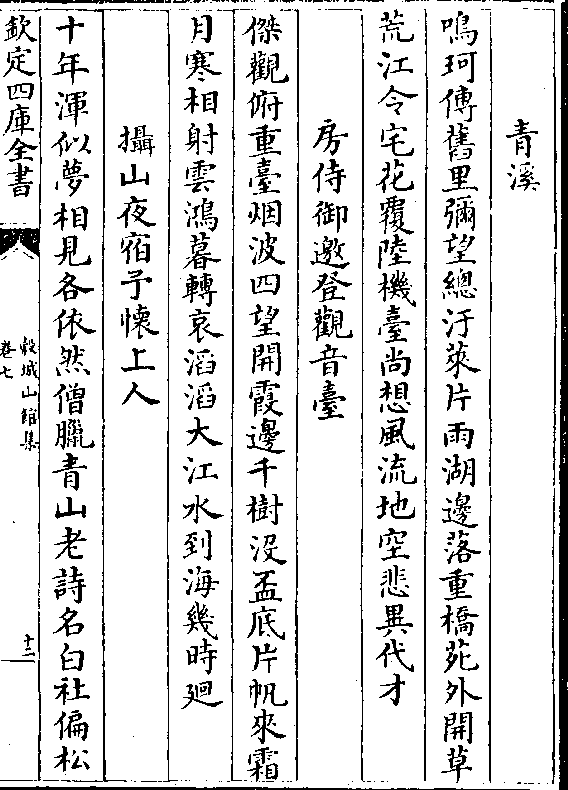 青溪
鳴珂傅舊里彌望總汙萊片雨湖邊落重橋苑外開草
荒江令宅花覆陸機臺尚想風流地空悲異代才
房侍御邀登觀音臺
傑觀俯重臺烟波四望開霞邊千樹沒盃底片帆來霜
月寒相射雲鴻暮轉哀滔滔大江水到海幾時廻
攝山夜宿予懷上人
十年渾似夢相見各依然僧臘青山老詩名白社偏松
欽定四庫全書
穀城山館集
卷七
十二